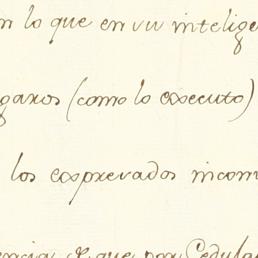 n lo que en su intelig
garos (como lo executo)
los expresados incom
encia, que por Cedula